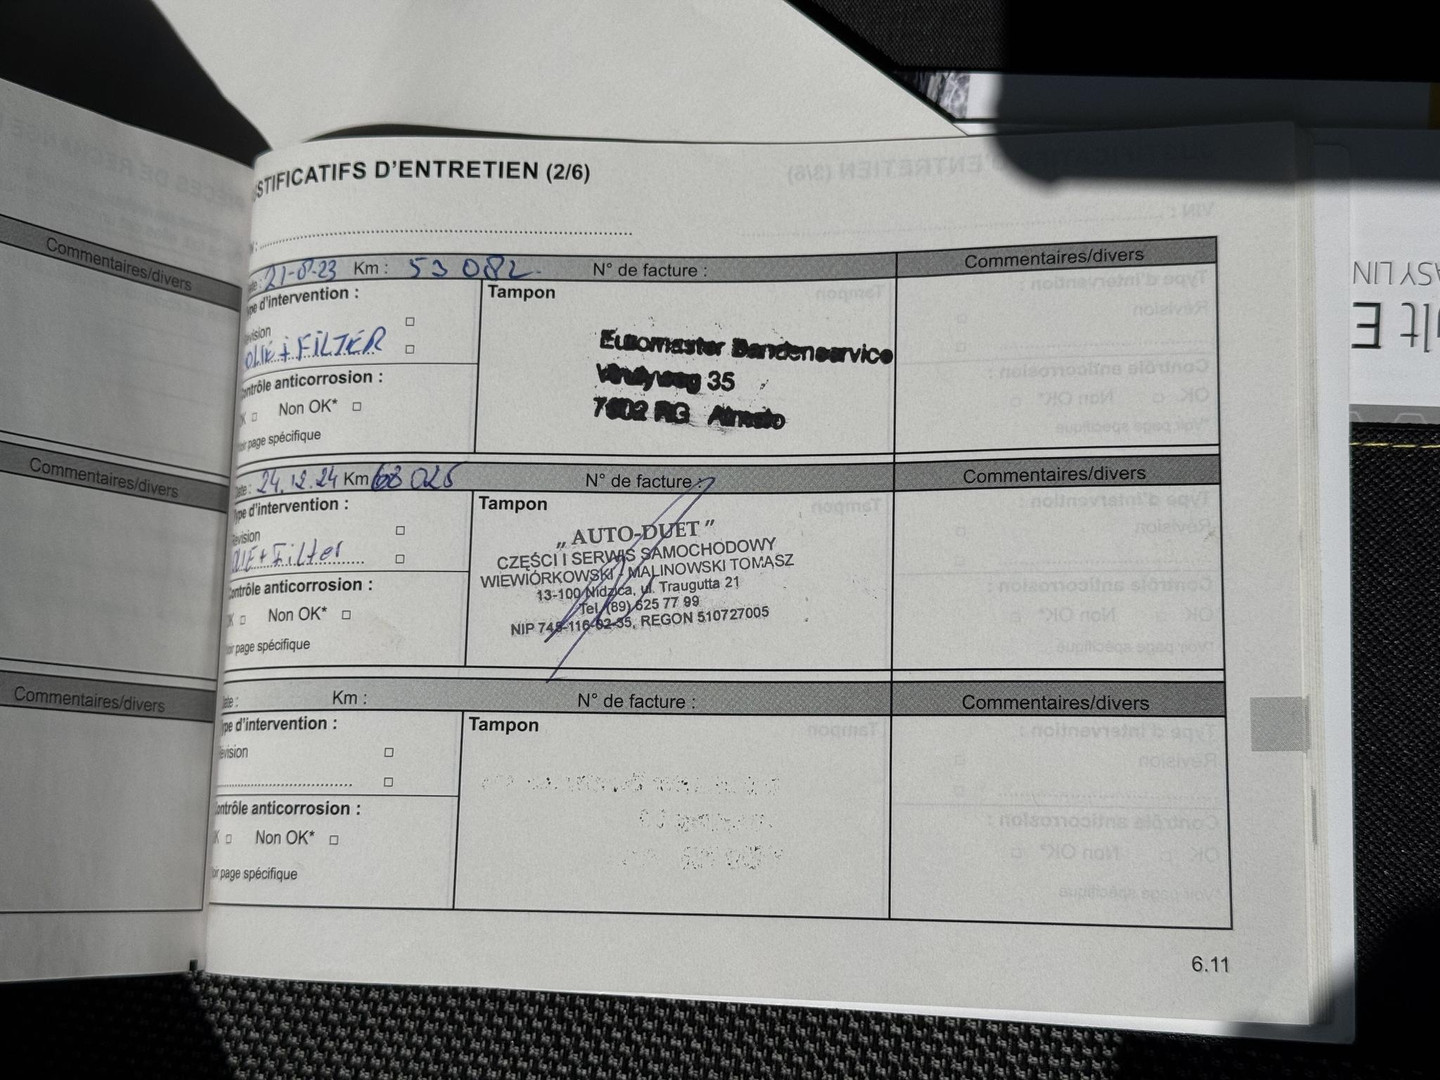 STIFICATIFS D'ENTRETIEN (2/6)
Commentaires/divers
21-8-23 Km : 53 082
N° de facture :
Commentaires/divers
Type d'intervention :
OLIE + FILTER
Contrôle anticorrosion :
Non OK*
page spécifique
Tampon
Euromaster Bandenservice
35
7602 RG Almelo
Commentaires/divers
24.12.24 Km 68 025
N° de facture :
Commentaires/divers
Type d'intervention :
Révision
OLIE + Filter
Contrôle anticorrosion :
Non OK*
page spécifique
Tampon
„ AUTO-DUET ”
CZĘŚCI I SERWIS SAMOCHODOWY
WIEWIÓRKOWSKI - MALINOWSKI TOMASZ
13-100 Nidzica, ul. Traugutta 21
Tel. (89) 625 77 99
NIP 745-116-62-35, REGON 510727005
Commentaires/divers
Km :
N° de facture :
Commentaires/divers
ype d'intervention :
évision
ontrôle anticorrosion :
Non OK*
page spécifique
Tampon
6.11